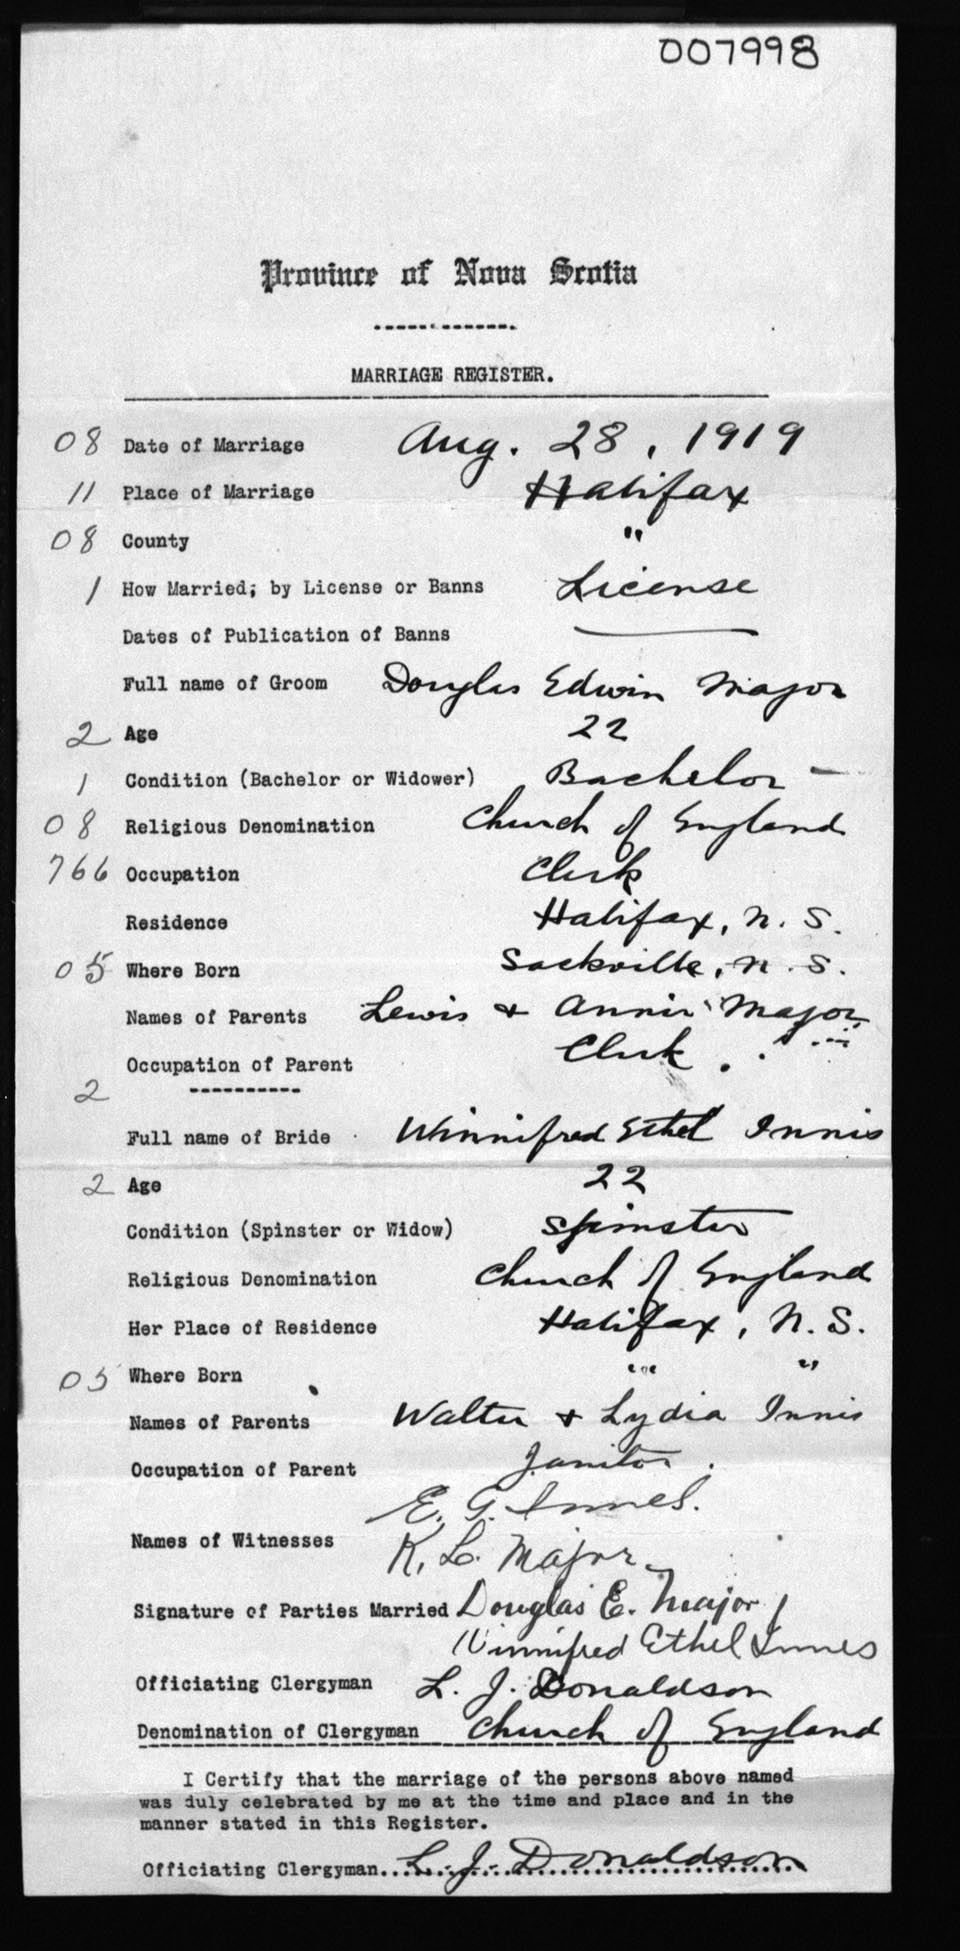 007998
Province of Nova Scotia
MARRIAGE REGISTER.
08 Date of Marriage Aug. 28, 1919
11 Place of Marriage Halifax
08 County "
1 How Married; by License or Banns License
Dates of Publication of Banns
Full name of Groom Douglas Edwin Major
2 Age 22
1 Condition (Bachelor or Widower) Bachelor
08 Religious Denomination Church of England
766 Occupation Clerk
Residence Halifax, N. S.
05 Where Born Sackville, N. S.
Names of Parents Lewis & Annie Major
Occupation of Parent Clerk.
2
Full name of Bride Winnifred Ethel Innis
2 Age 22
Condition (Spinster or Widow) Spinster
Religious Denomination Church of England
Her Place of Residence Halifax, N. S.
05 Where Born " "
Names of Parents Walter & Lydia Innis
Occupation of Parent Janitor.
E. G. Innes.
Names of Witnesses K. L. Major
Signature of Parties Married Douglas E. Major
Winnifred Ethel Innes
Officiating Clergyman L. J. Donaldson
Denomination of Clergyman Church of England
I Certify that the marriage of the persons above named
was duly celebrated by me at the time and place and in the
manner stated in this Register.
Officiating Clergyman L. J. Donaldson